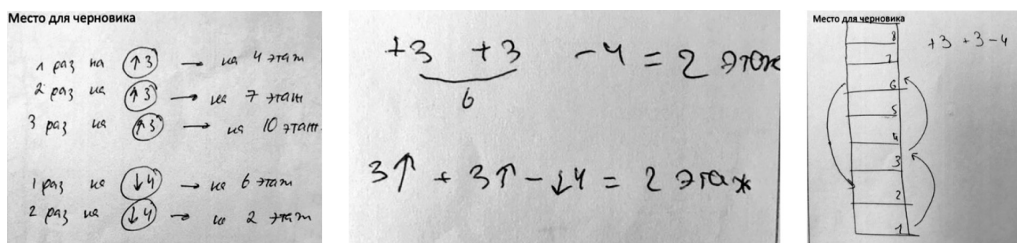 Место для черновика
1 раз на ↑3 → на 4 этаж
2 раз на ↑3 → на 7 этаж
3 раз на ↑3 → на 10 этаж
1 раз на ↓4 → на 6 этаж
2 раз на ↓4 → на 2 этаж
+3 +3 -4 = 2 этаж
6
3↑ + 3↑ - ↓4 = 2 этаж
Место для черновика
+3 +3 -4
8
7
6
5
4
3
2
1